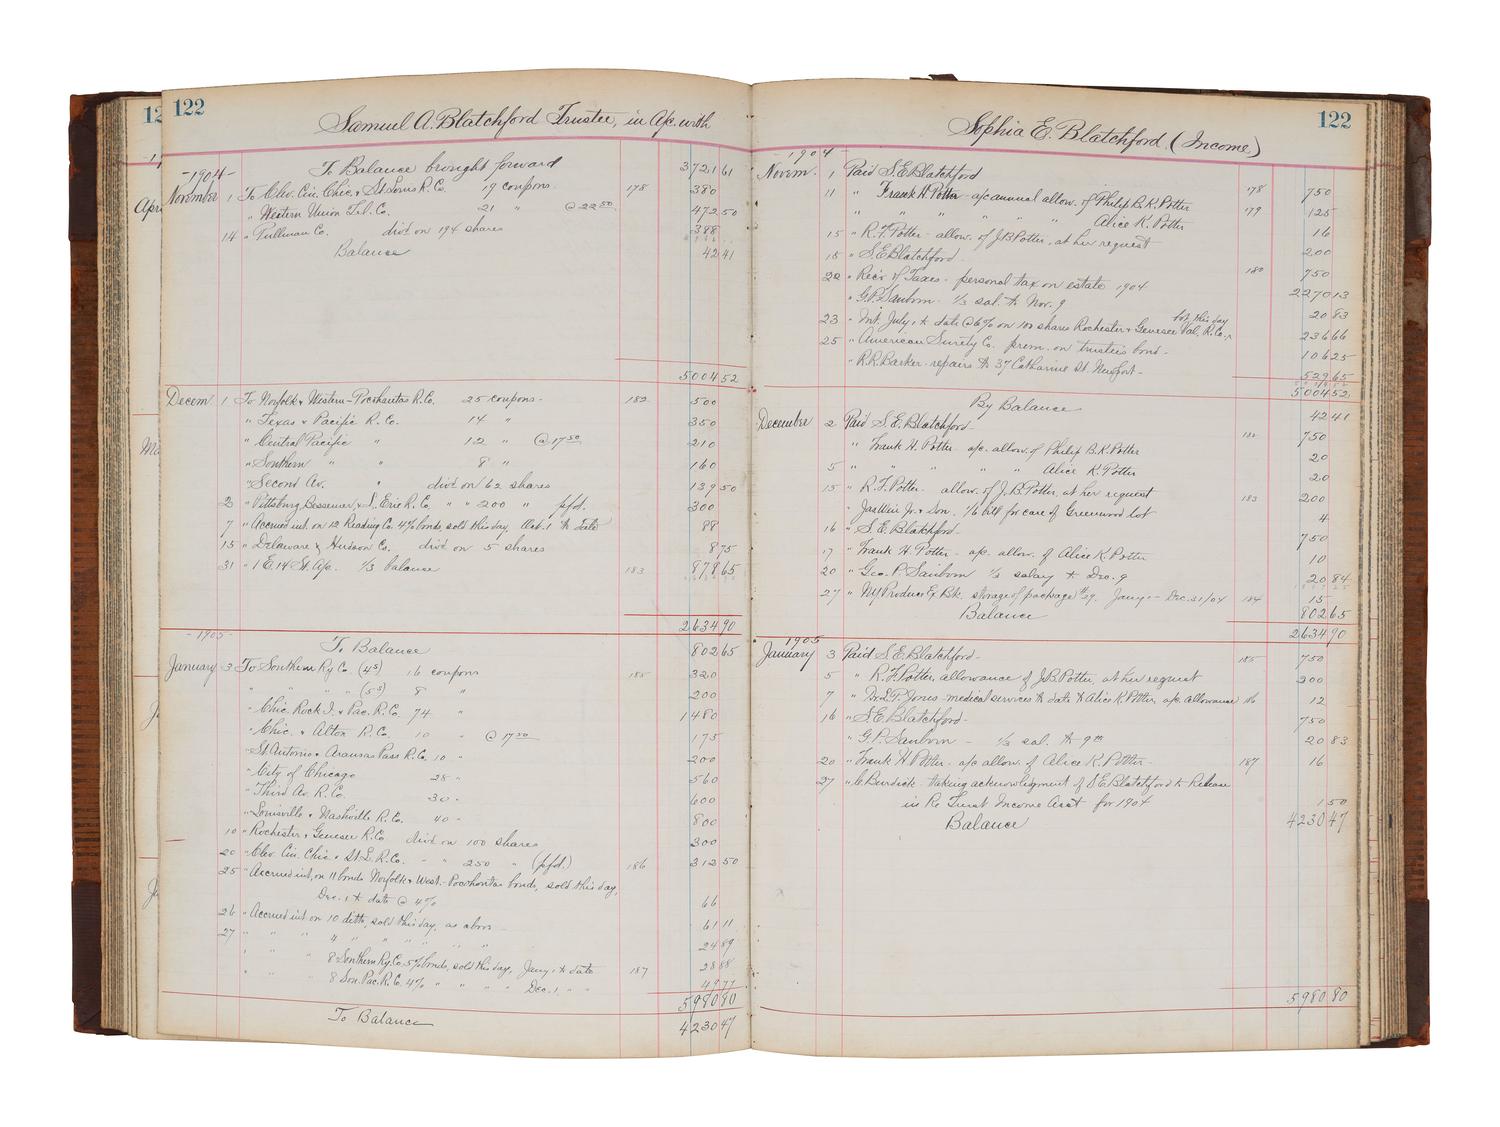 12
122
Samuel A. Blatchford Trustee, in A/c. with
-1904-
To Balance brought forward 3721 61
November 1 To Clev. Cin. Chic. & St Louis R. Co. 19 coupons 178 380
" Western Union Tel. Co. 21 " @ 22 50 472 50
14 " Pullman Co. divd. on 194 shares 388
Balance 42 41
5004 52
Decem. 1 To Norfolk & Western-Pocahontas R. Co. 25 coupons- 182 500
" Texas & Pacific R. Co. 14 " 350
" Central Pacific " 12 " @ 17 50 210
" Southern " " 8 " 160
" Second Av. " divd on 62 shares 139 50
2 " Pittsburg, Bessemer, & L. Erie R. Co. " " 200 " pfd. 300
7 " Accrued int. on 12 Reading Co. 4% bonds, sold this day, Oct. 1 to date 88
15 " Delaware & Hudson Co. divd on 5 shares 8 75
31 " 1 E. 14 St. A/c. 1/3 balance 183 878 65
2634 90
-1905-
To Balance 802 65
January 3 To Southern Ry Co. (4s) 16 coupons 185 320
" " " " (5s) 8 " 200
" Chic. Rock I. & Pac. R. Co. 74 " 1480
" Chic. & Alton R. Co. 10 " @ 17 50 175
" St. Antonio & Aransas Pass R. Co. 10 " 200
" City of Chicago 28 " 560
" Third Av. R. Co. 30 - 600
" Louisville & Nashville R. Co. 40 - 800
10 " Rochester & Genesee R. Co. divd on 100 shares 300
20 " Clev. Cin. Chic. & St. L. R. Co. " " 250 " (pfd.) 186 312 50
25 " Accrued int. on 11 bonds Norfolk & West.-Pocohontas bonds, sold this day,
Dec. 1 to date @ 4% 66
26 " Accrued int on 10 ditto, sold this day, as above- 61 11
27 " " " 4 " " " " " 24 89
" " " 8 Southern Ry. Co. 5% bonds, sold this day, Jany. 1 to date 187 28 88
" " " 8 Sou. Pac. R. Co. 4% " " " " Dec. 1, " " 49 77
5980 80
To Balance 4230 47
Sophia E. Blatchford. (Income)
122
-1904-
Novem. 1 Paid S. E. Blatchford 178 750
11 " Frank H. Potter - a/c annual allow. of Philip B. K. Potter 179 125
" " " " " " Alice K. Potter 16
15 " R. F. Potter - allow. of J. B. Potter, at her request 200
15 " S. E. Blatchford 180 750
22 " Recr. of Taxes - personal tax on estate 1904 2270 13
" G. P. Sanborn - 1/3 sal. to Nov. 9 20 83
bot. this day
23 " Int. July 1 to date @ 6% on 100 shares Rochester & Genesee Val. R. Co. 236 66
25 " American Surety Co. prem. on trustees bond- 106 25
" R. R. Barker - repairs to 37 Catharine St. Newport- 529 65
5004 52
By Balance 42 41
December 2 Paid S. E. Blatchford 182 750
" Frank H. Potter a/c. allow. of Philip B. K. Potter 20
5 " " " " " Alice K. Potter 20
15 " R. F. Potter- allow. of J. B. Potter, at her request 183 200
" Jas Weir Jr. & Son. 1/6 bill for care of Greenwood lot 4
16 " S. E. Blatchford- 750
17 " Frank H. Potter - a/c. allow. of Alice K. Potter 10
20 " Geo. P. Sanborn 1/3 salary to Dec. 9 20 84
27 " N Y Produce Ex Bk. storage of package #29. Jany 1- Dec. 31/04 184 15
Balance 802 65
2634 90
1905
January 3 Paid S. E. Blatchford- 185 750
5 " R. F. Potter, allowance of J. B. Potter, at her request 200
7 " Dr. L. F. Jones - medical services to date to Alice K. Potter, a/c. allowance 186 12
16 " S. E. Blatchford- 750
" G. P. Sanborn 1/3 sal. to 9th 20 83
20 " Frank H Potter - a/c allow. of Alice K. Potter- 187 16
27 " C. Burdick - taking acknowledgment of S. E. Blatchford to Release
in Re Trust Income Acct for 1904 1 50
Balance 4230 47
5980 80